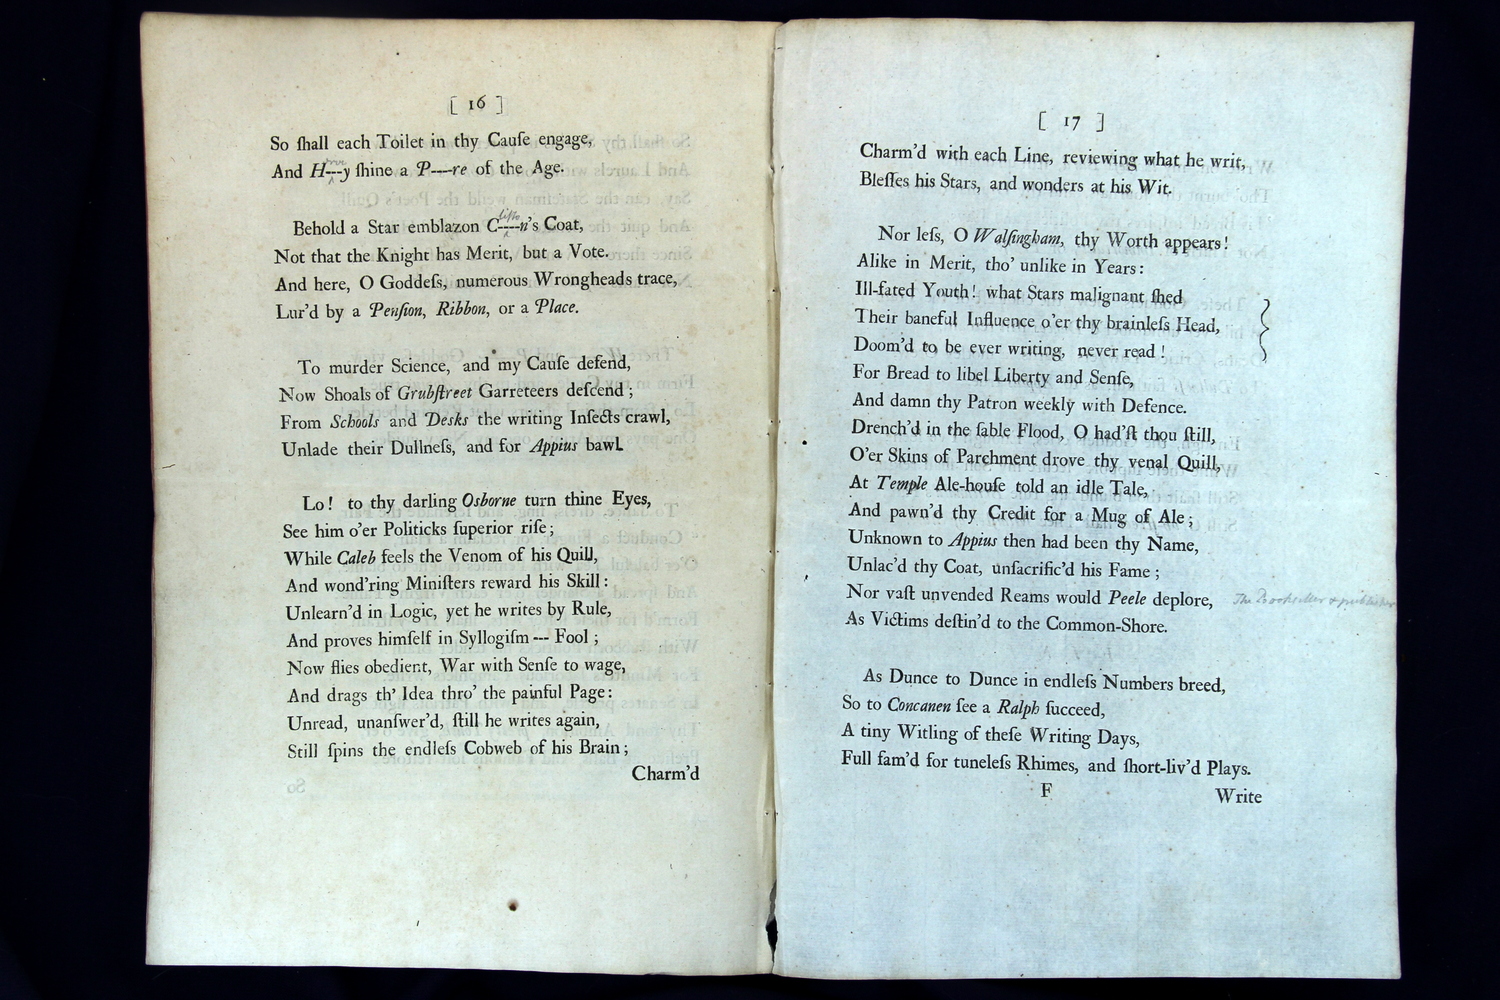 [ 16 ]
So ſhall each Toilet in thy Cauſe engage,
And H---y ſhine a P----re of the Age.
Behold a Star emblazon C----n's Coat,
Not that the Knight has Merit, but a Vote.
And here, O Goddeſs, numerous Wrongheads trace,
Lur'd by a Penſion, Ribbon, or a Place.
To murder Science, and my Cauſe defend,
Now Shoals of Grubſtreet Garreteers deſcend;
From Schools and Desks the writing Inſects crawl,
Unlade their Dullneſs, and for Appius bawl.
Lo! to thy darling Osborne turn thine Eyes,
See him o'er Politicks ſuperior riſe;
While Caleb feels the Venom of his Quill,
And wond'ring Miniſters reward his Skill:
Unlearn'd in Logic, yet he writes by Rule,
And proves himſelf in Syllogiſm --- Fool;
Now flies obedient, War with Senſe to wage,
And drags th' Idea thro' the painful Page:
Unread, unanſwer'd, ſtill he writes again,
Still ſpins the endleſs Cobweb of his Brain;
Charm'd
[ 17 ]
Charm'd with each Line, reviewing what he writ,
Bleſſes his Stars, and wonders at his Wit.
Nor leſs, O Walſingham, thy Worth appears!
Alike in Merit, tho' unlike in Years:
Ill-fated Youth! what Stars malignant ſhed
Their baneful Influence o'er thy brainleſs Head,
Doom'd to be ever writing, never read!
For Bread to libel Liberty and Senſe,
And damn thy Patron weekly with Defence.
Drench'd in the ſable Flood, O had'ſt thou ſtill,
O'er Skins of Parchment drove thy venal Quill,
At Temple Ale-houſe told an idle Tale,
And pawn'd thy Credit for a Mug of Ale;
Unknown to Appius then had been thy Name,
Unlac'd thy Coat, unſacrific'd his Fame;
Nor vaſt unvended Reams would Peele deplore, The Bookseller & publisher
As Victims deſtin'd to the Common-Shore.
As Dunce to Dunce in endleſs Numbers breed,
So to Concanen ſee a Ralph ſucceed,
A tiny Witling of theſe Writing Days,
Full fam'd for tuneleſs Rhimes, and ſhort-liv'd Plays.
F
Write